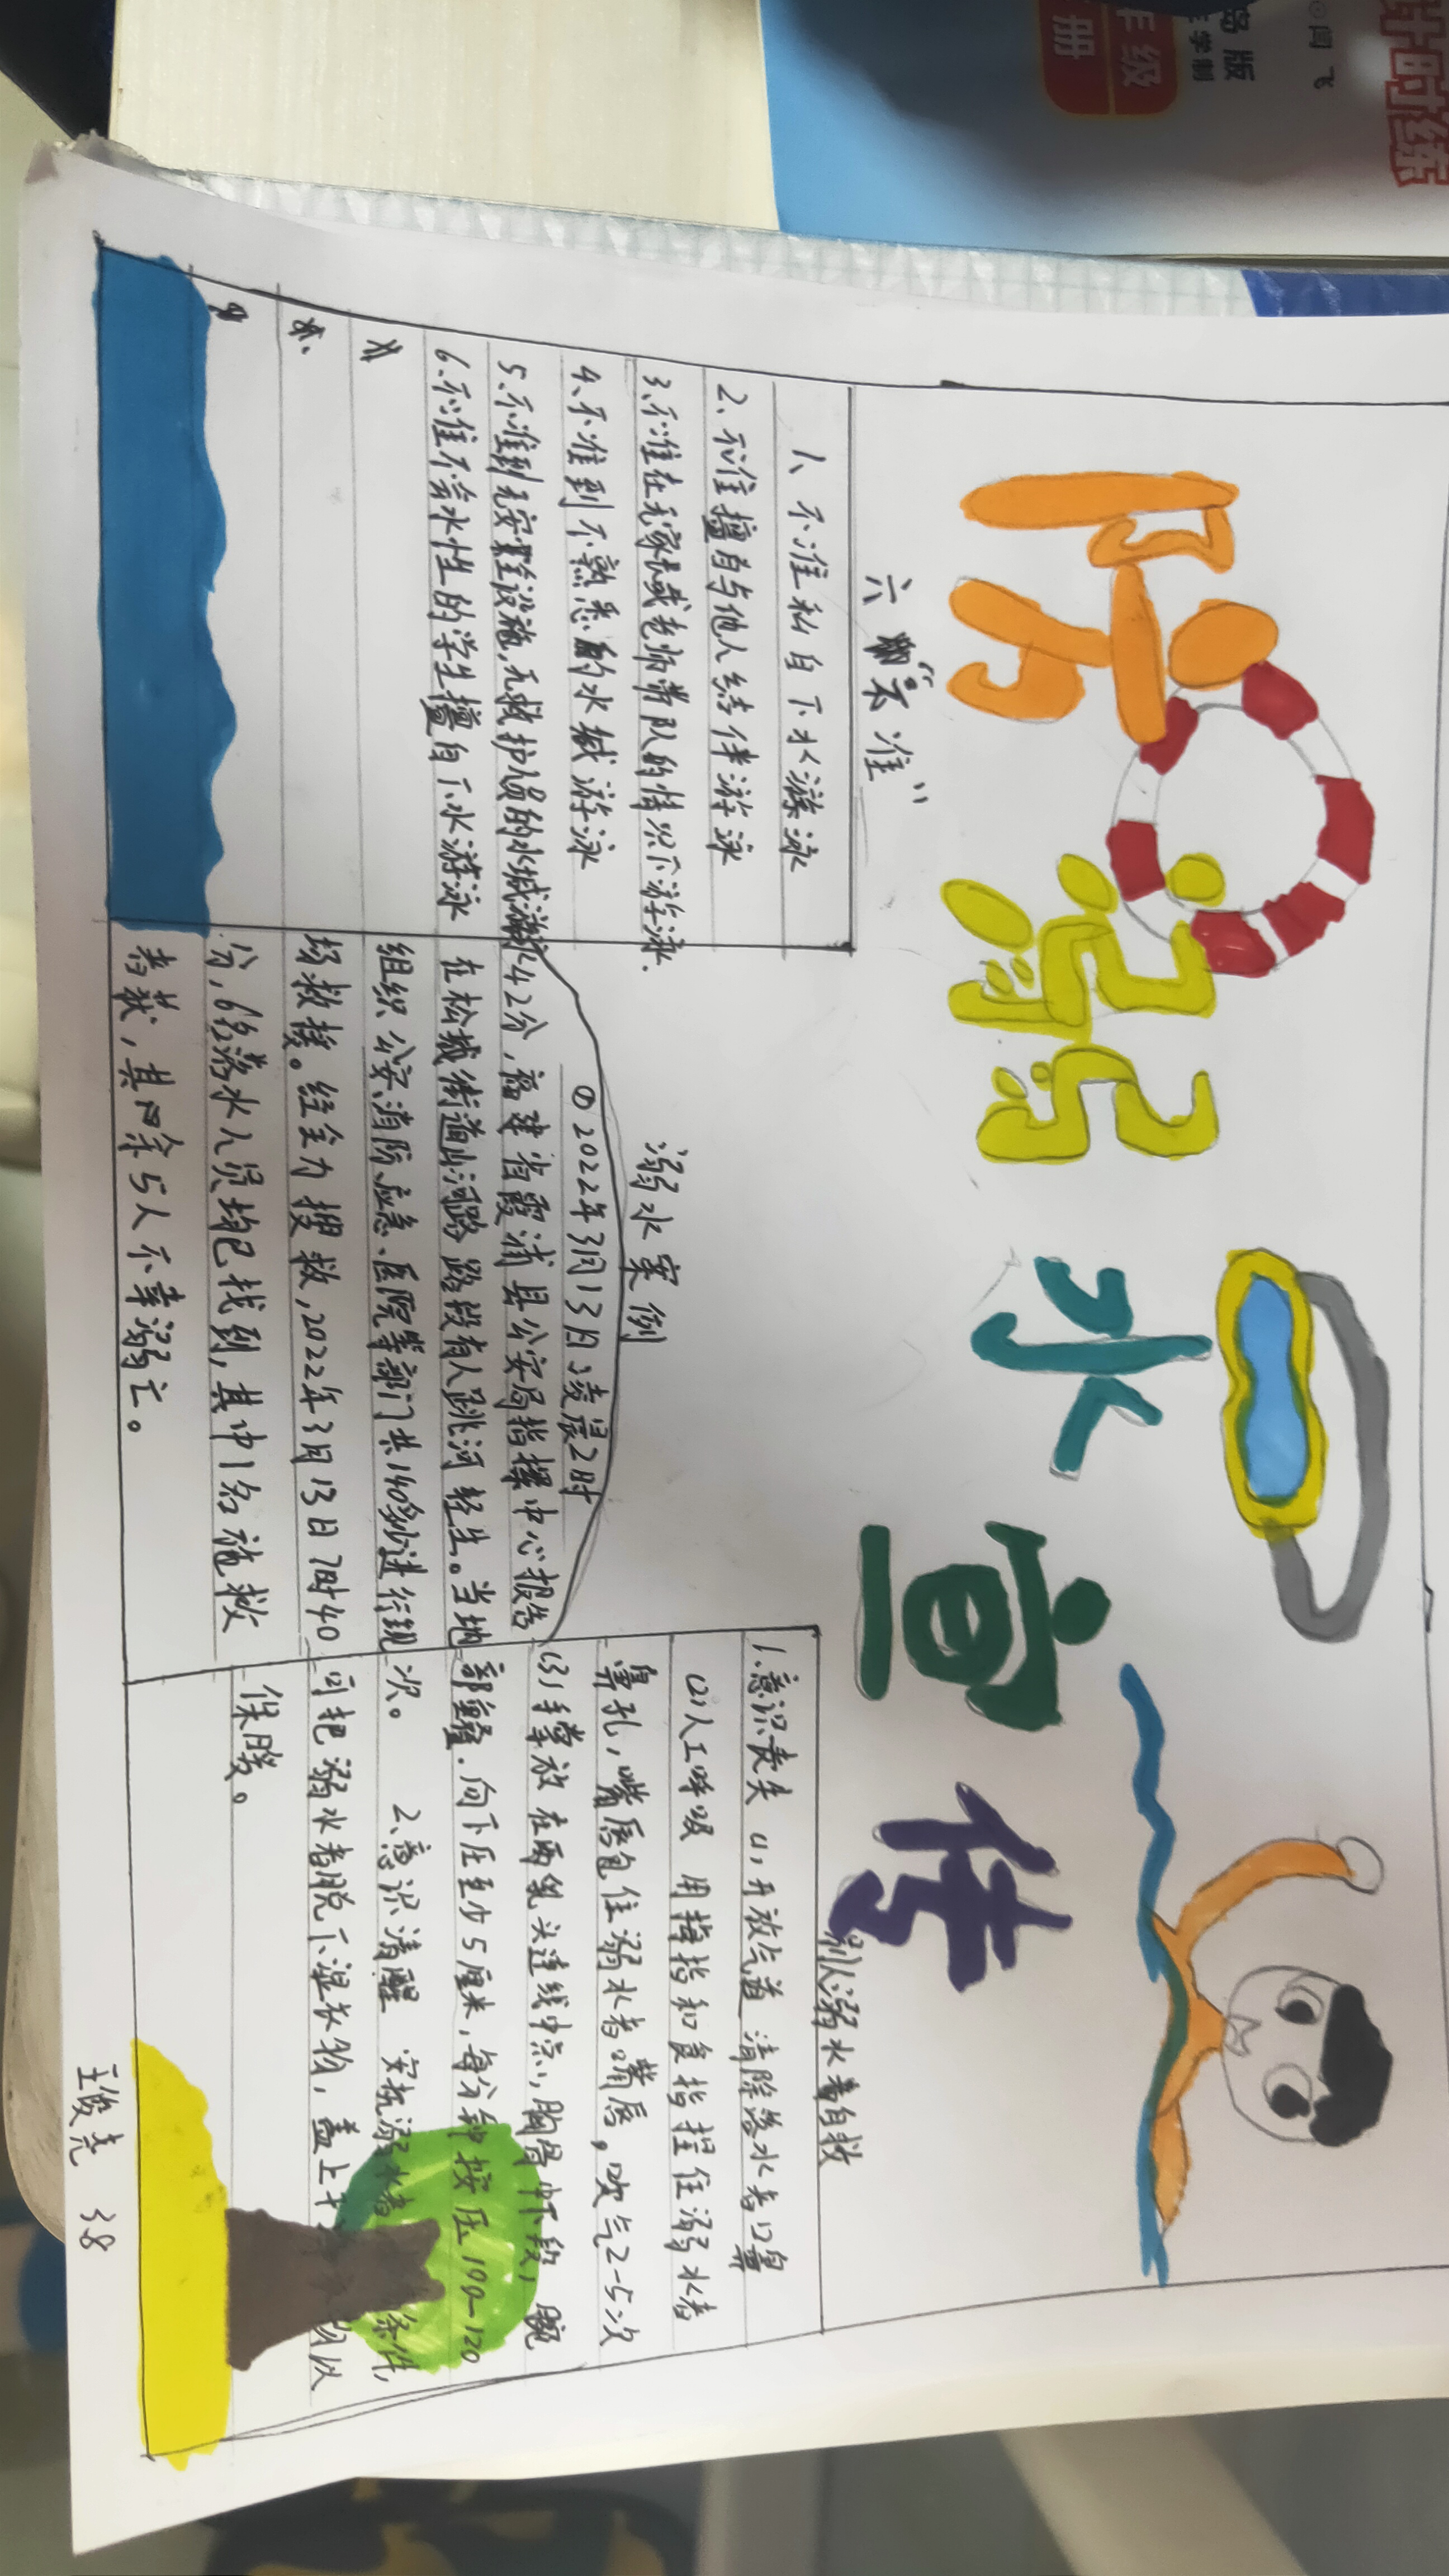 防溺水宣传
六“不准”
1、不准私自下水游泳
2、不准擅自与他人结伴游泳
3、不准在无家长或老师带队的情况下游泳.
4、不准到不熟悉的水域游泳
5、不准到无安全设施,无救护人员的水域游泳
6、不准不会水性的学生擅自下水游泳
溺水案例
① 2022年3月13日凌晨2时
42分,福建省霞浦县公安局指挥中心报告
在松城街道山河路路段有人跳河轻生。当地
组织公安、消防、应急、医院等部门共140多人进行现
场救援。经全力搜救,2022年3月13日7时40
分,6名落水人员均已找到,其中1名施救
者获,其余5人不幸溺亡。
别人溺水着自救
1.意识丧失 (1)开放气道 清除落水者口鼻
(2)人工呼吸 用拇指和食指捏住溺水者
鼻孔,嘴唇包住溺水者嘴唇,吹气2-5次
(3)手掌放在两乳头连线中点,胸骨下段,腕
部重叠.向下压至少5厘米,每分钟按压100-120
次。 2、意识清醒 安抚溺水者 条件,
可把溺水者脱下湿衣物,盖上干 以
保暖。
王俊尧 38
计时练
闫飞
岛版
年学制
年级
册